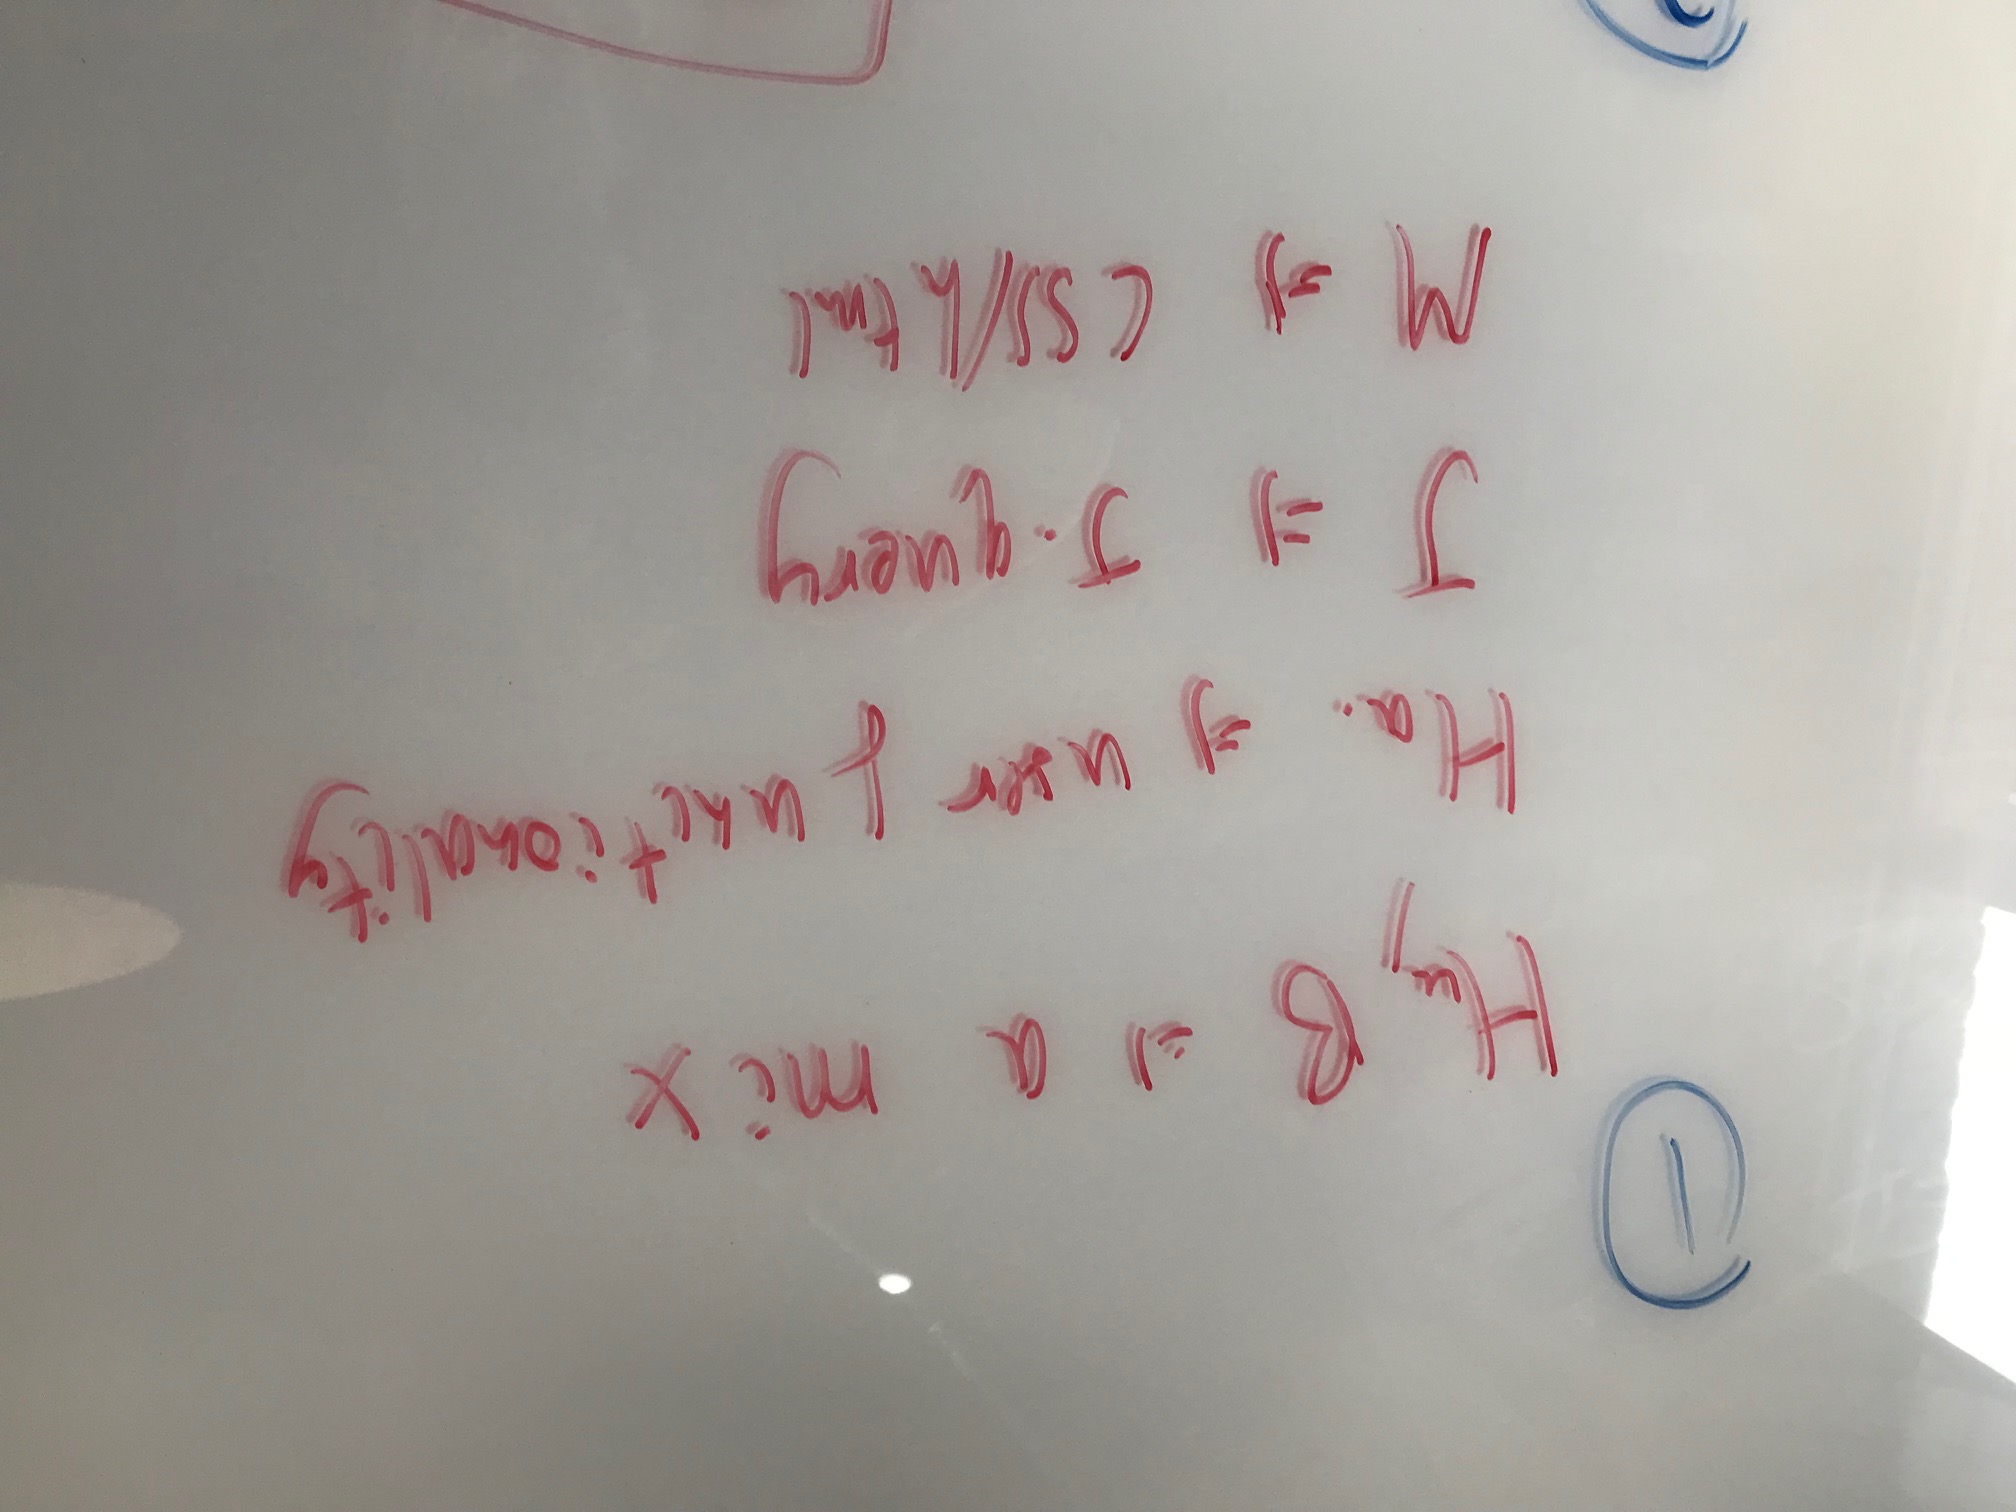 ①
Hu, B => a mix
Ha. => user functionality
J => J.query
M => CSS/html